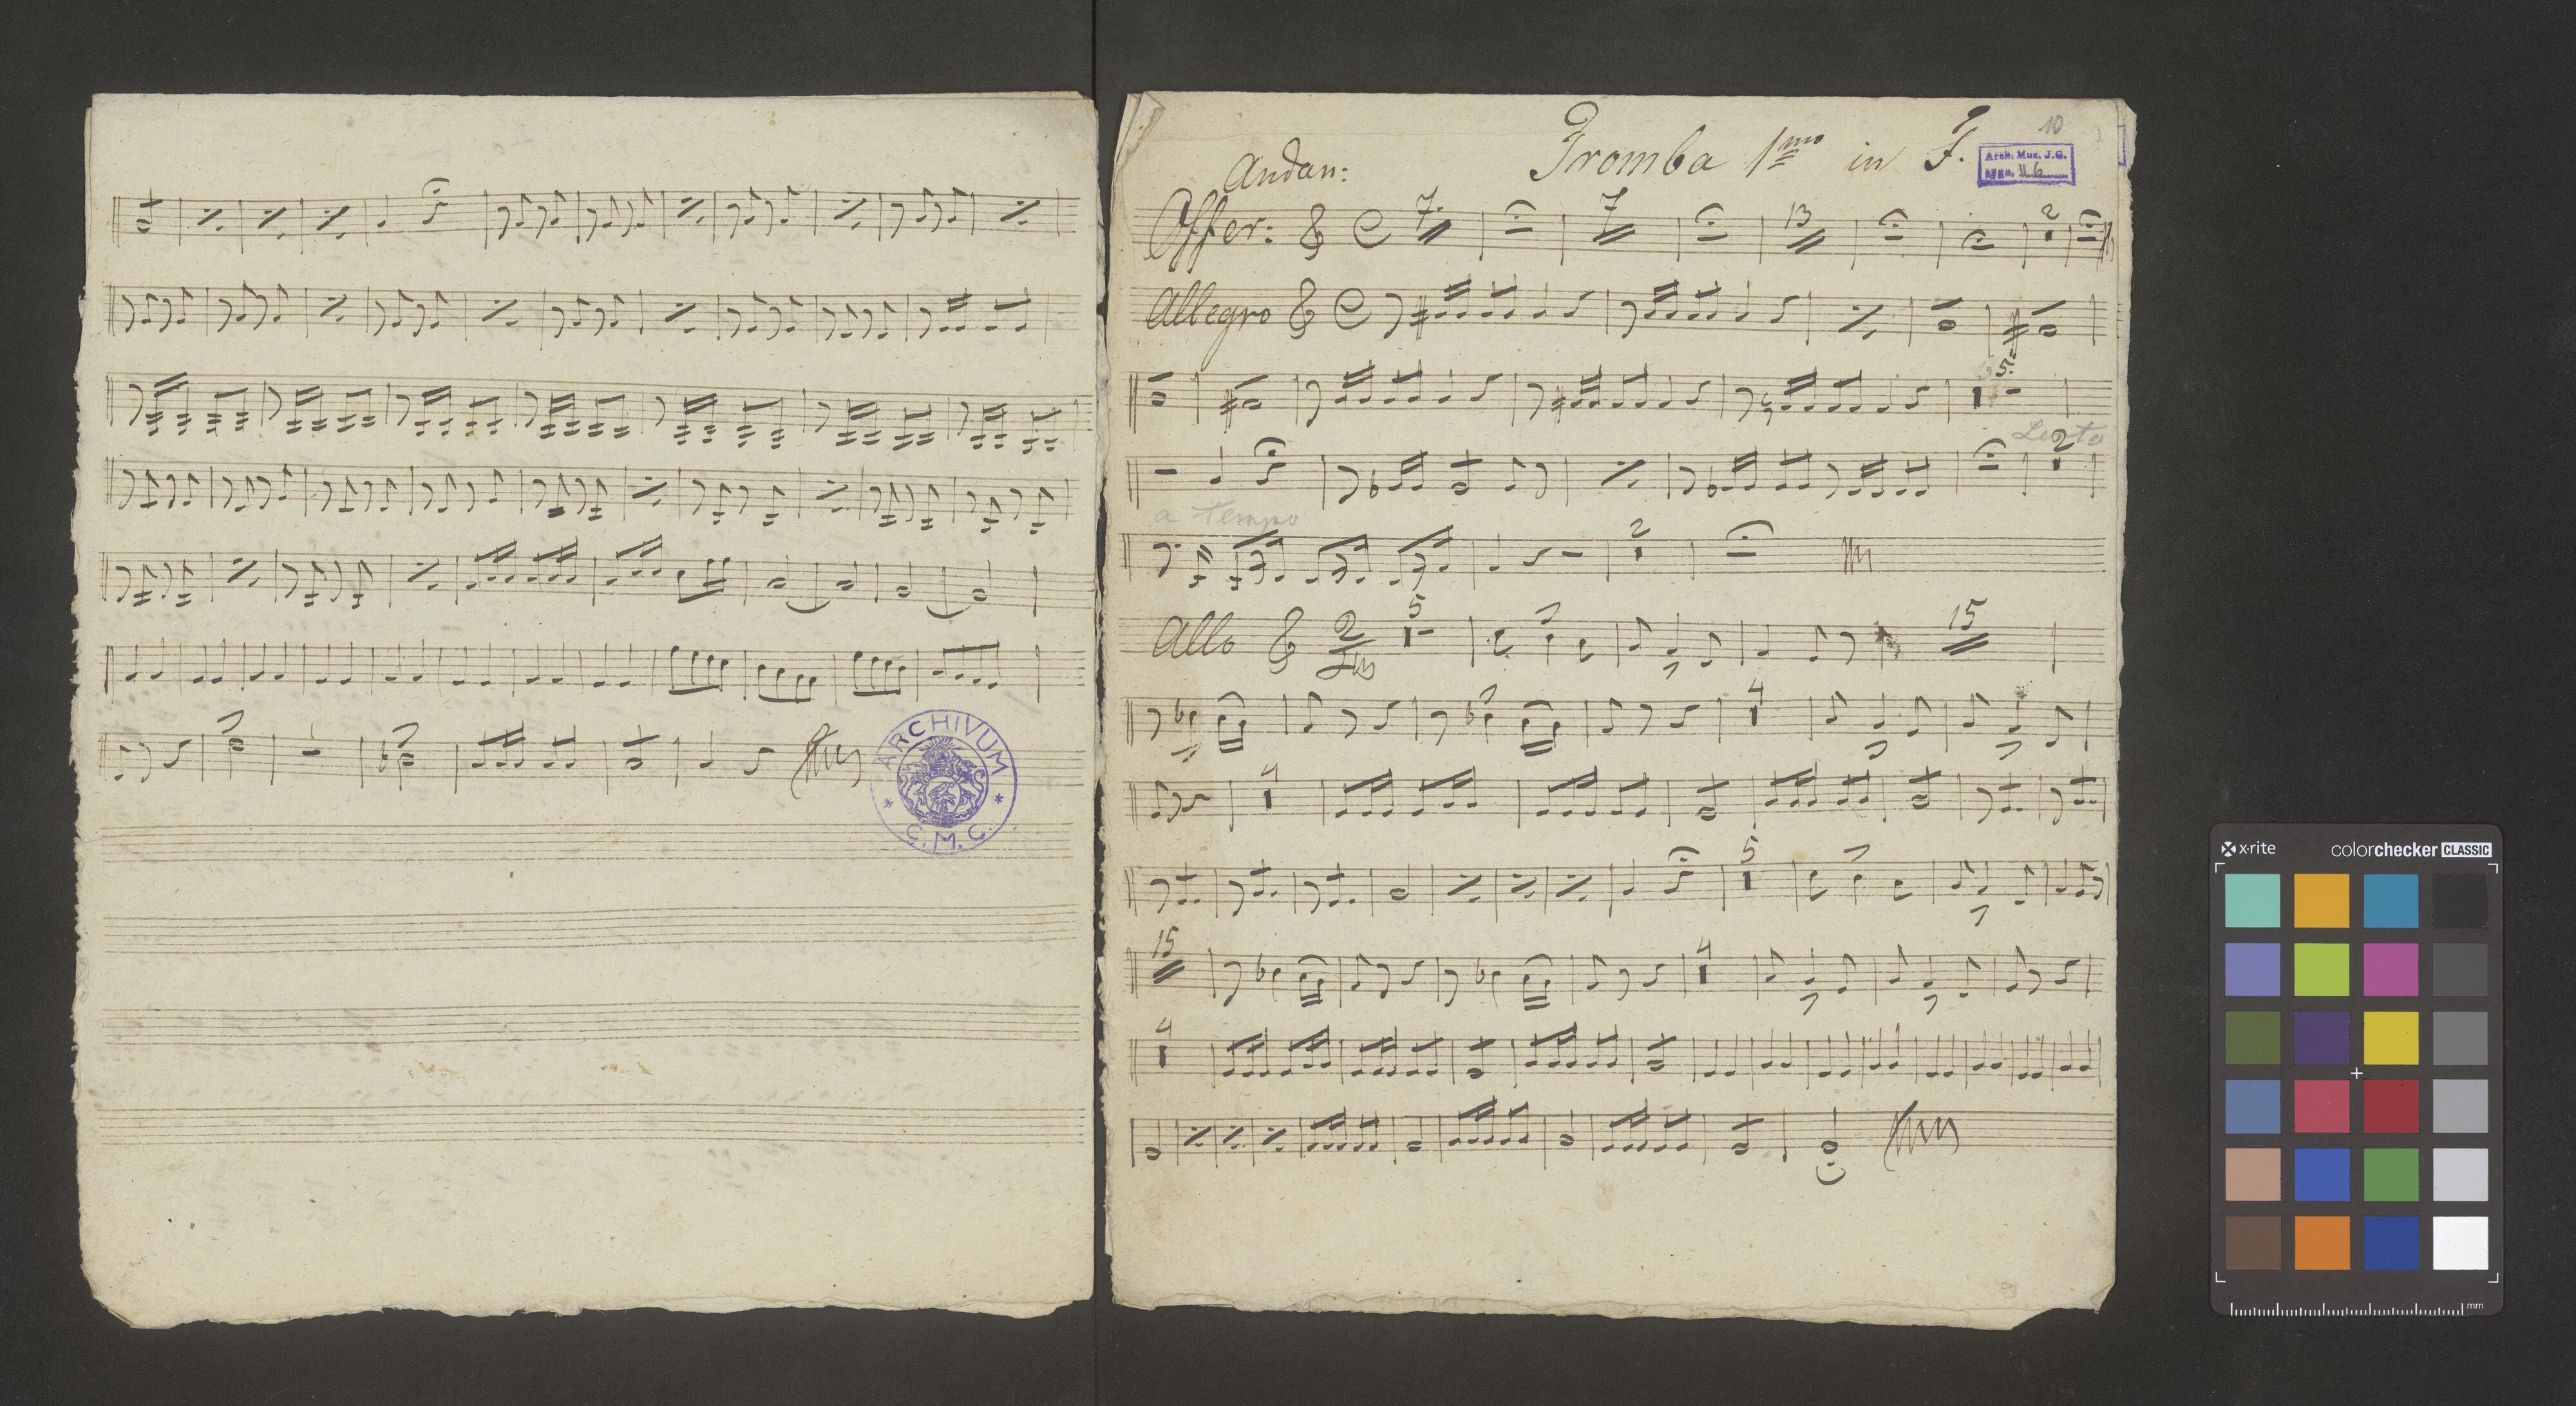 ARCHIVUM
* C. M. C. *
10
Tromba 1mo in F.
Arch. Mus. J. G.
Andan:
Offer: 7. 7 13 2
Allegro
5.
Lento
2
a Tempo
2
Allo 2 5 15
4
4
5
15 4
4
x·rite
colorchecker CLASSIC
mm